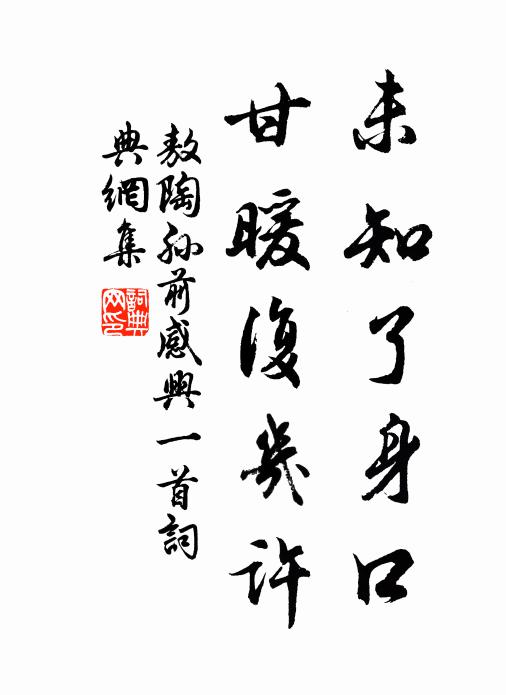 未知了身口
甘暖復幾許
敖陶孙前感興一首詞
典網集
詞典
网印